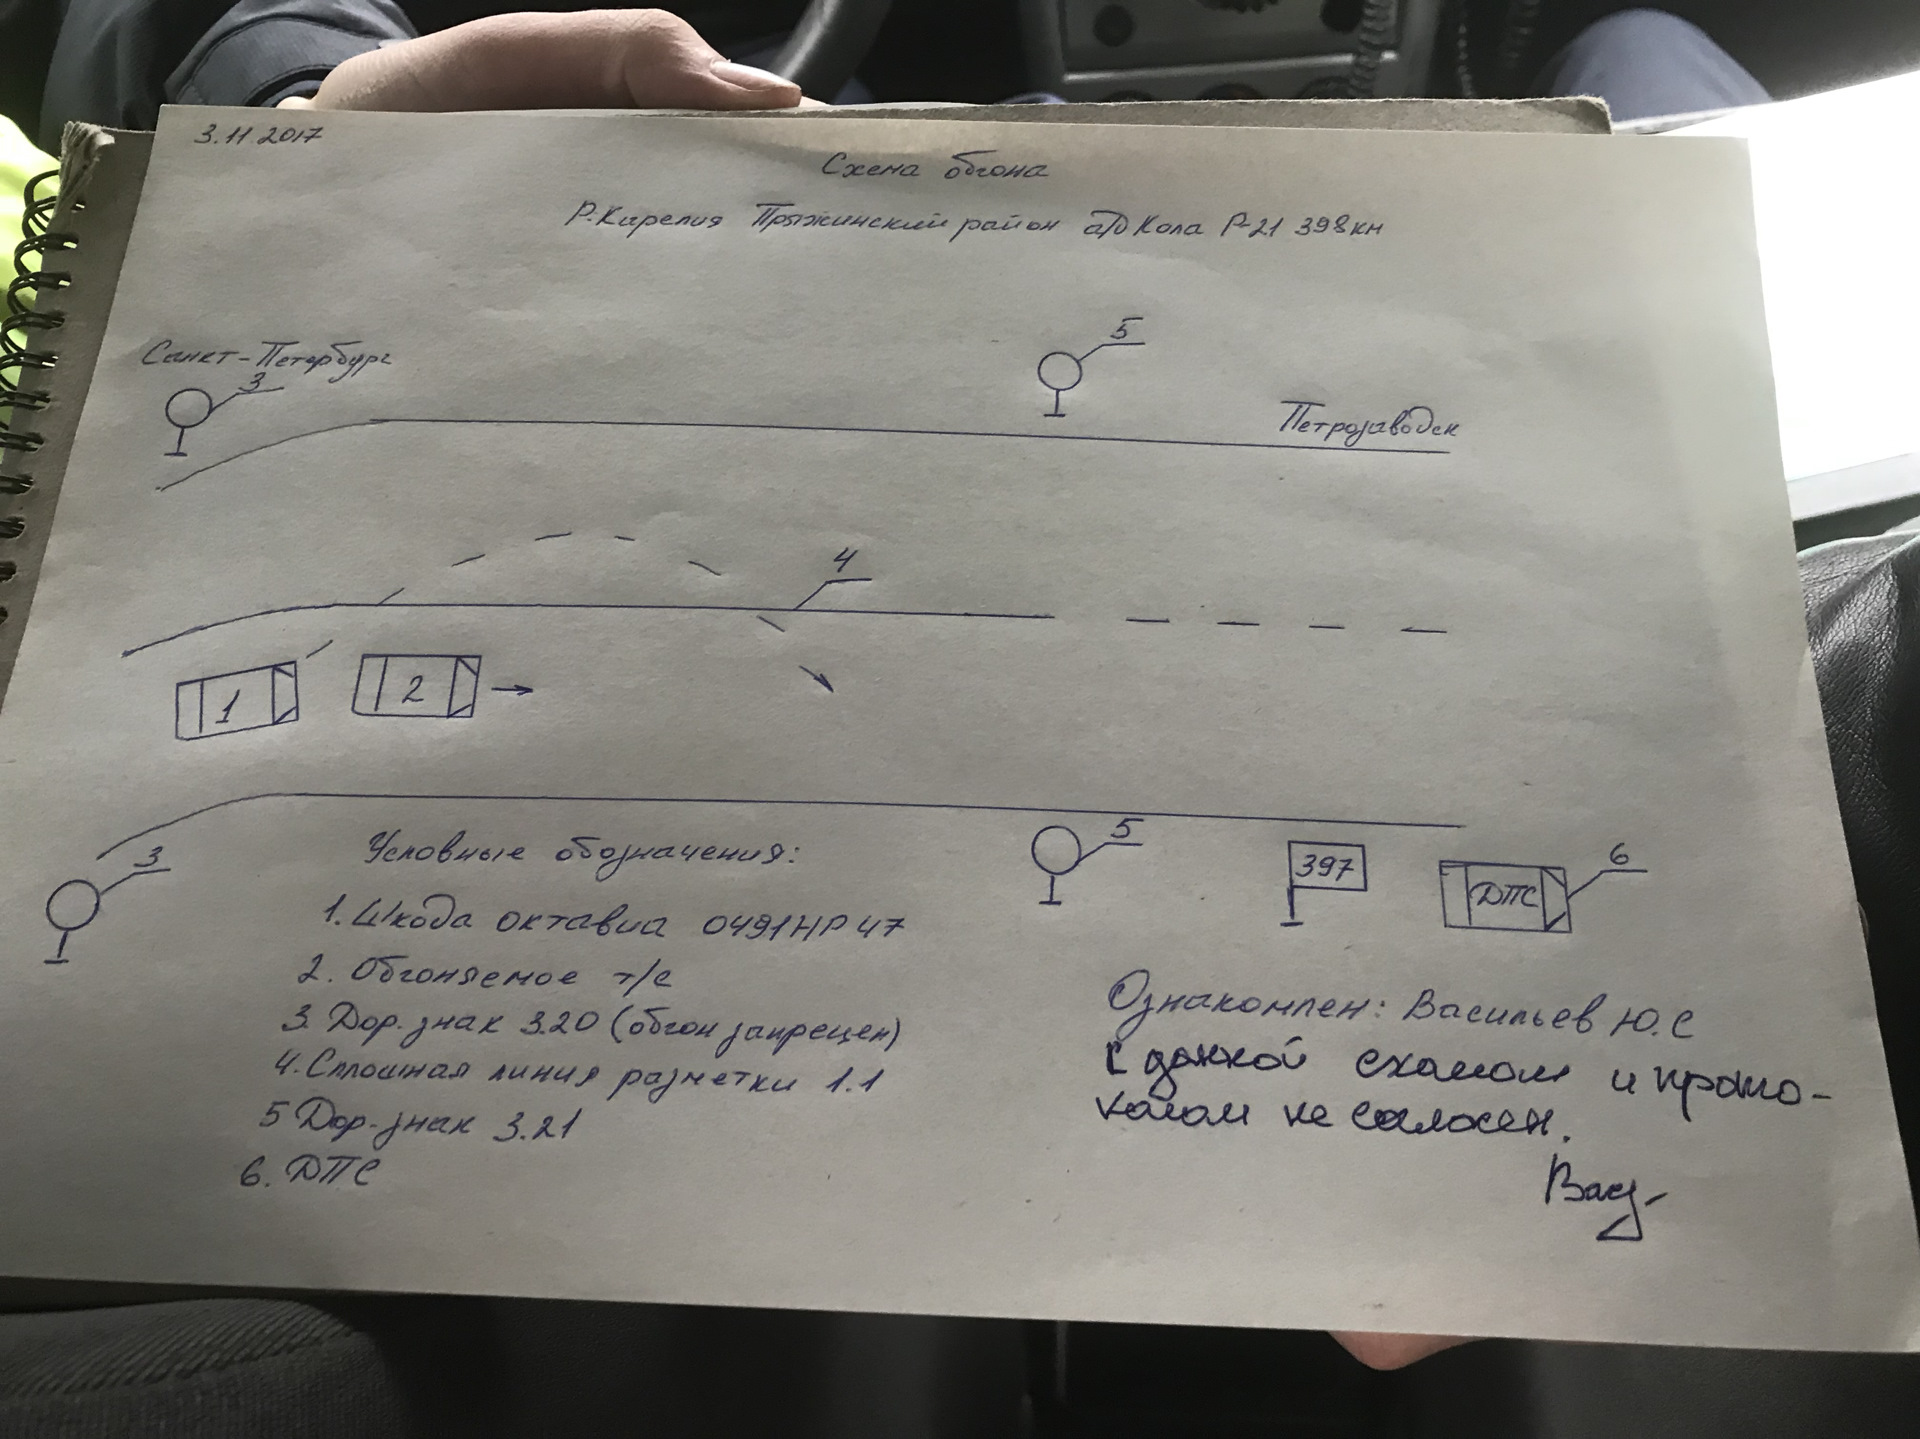 3.11 2017
Схема обгона
Р.Карелия Пряжинский район а/д Кола Р-21 398км
Санкт-Петербург
3
5
Петрозаводск
4
1
2
3
5
397
ДПС
6
Условные обозначения:
1. Шкода октавиа О491НР 47
2. Обгоняемое т/с
3. Дор. знак 3.20 (обгон запрещен)
4. Сплошная линия разметки 1.1
5 Дор. знак 3.21
6. ДПС
Ознакомлен: Васильев Ю.С
С данной схемой и прото-
колом не согласен.
Вас